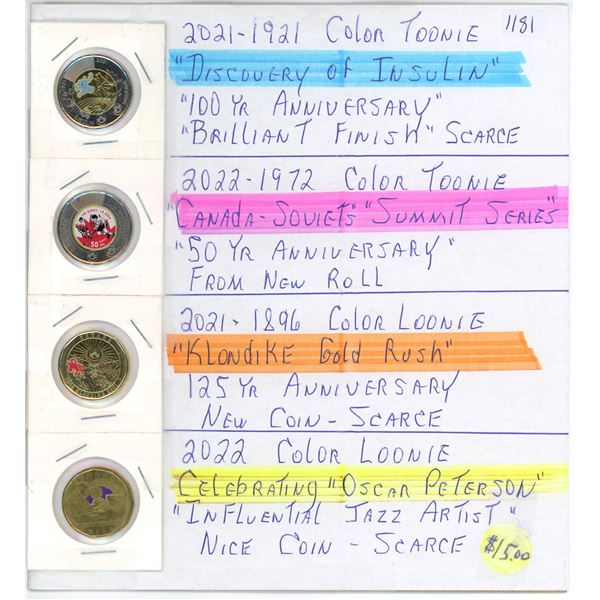 2021-1921 Color Toonie
1181
"Discovery of Insulin"
"100 Yr Anniversary"
"Brilliant Finish" Scarce
2022-1972 Color Toonie
"Canada-Soviets" "Summit Series"
"50 Yr Anniversary"
From New Roll
2021-1896 Color Loonie
"Klondike Gold Rush"
125 Yr Anniversary
New Coin - Scarce
2022 Color Loonie
Celebrating "Oscar Peterson"
"Influential Jazz Artist"
Nice Coin - Scarce
$15.00